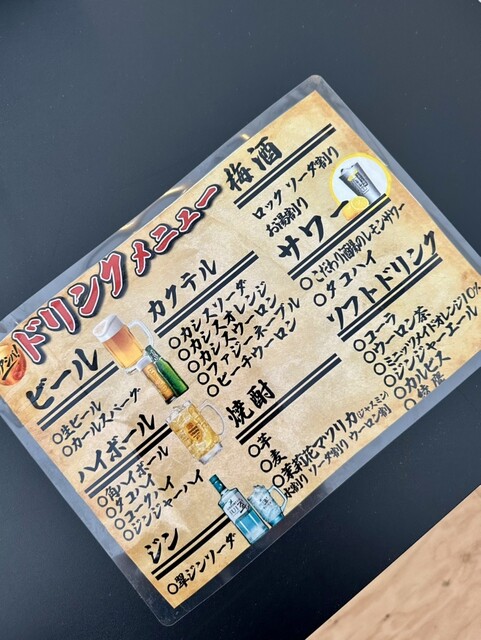 ドリンクメニュー
ビール
〇生ビール
〇カールスバーグ
ハイボール
〇角ハイボール
〇タコハイ
〇コークハイ
〇ジンジャーハイ
ジン
〇翠ジンソーダ
カクテル
〇カシスソーダ
〇カシスオレンジ
〇カシスウーロン
〇ファジーネーブル
〇ピーチウーロン
焼酎
〇芋
〇麦
〇茉莉花マツリカ(ジャスミン)
水割り ソーダ割り ウーロン割
梅酒
ロック ソーダ割り
お湯割り
サワー
〇こだわり酒場のレモンサワー
〇タコハイ
ソフトドリンク
〇コーラ
〇ウーロン茶
〇ミニッツメイドオレンジ10%
〇ジンジャーエール
〇カルピス
〇綾鷹